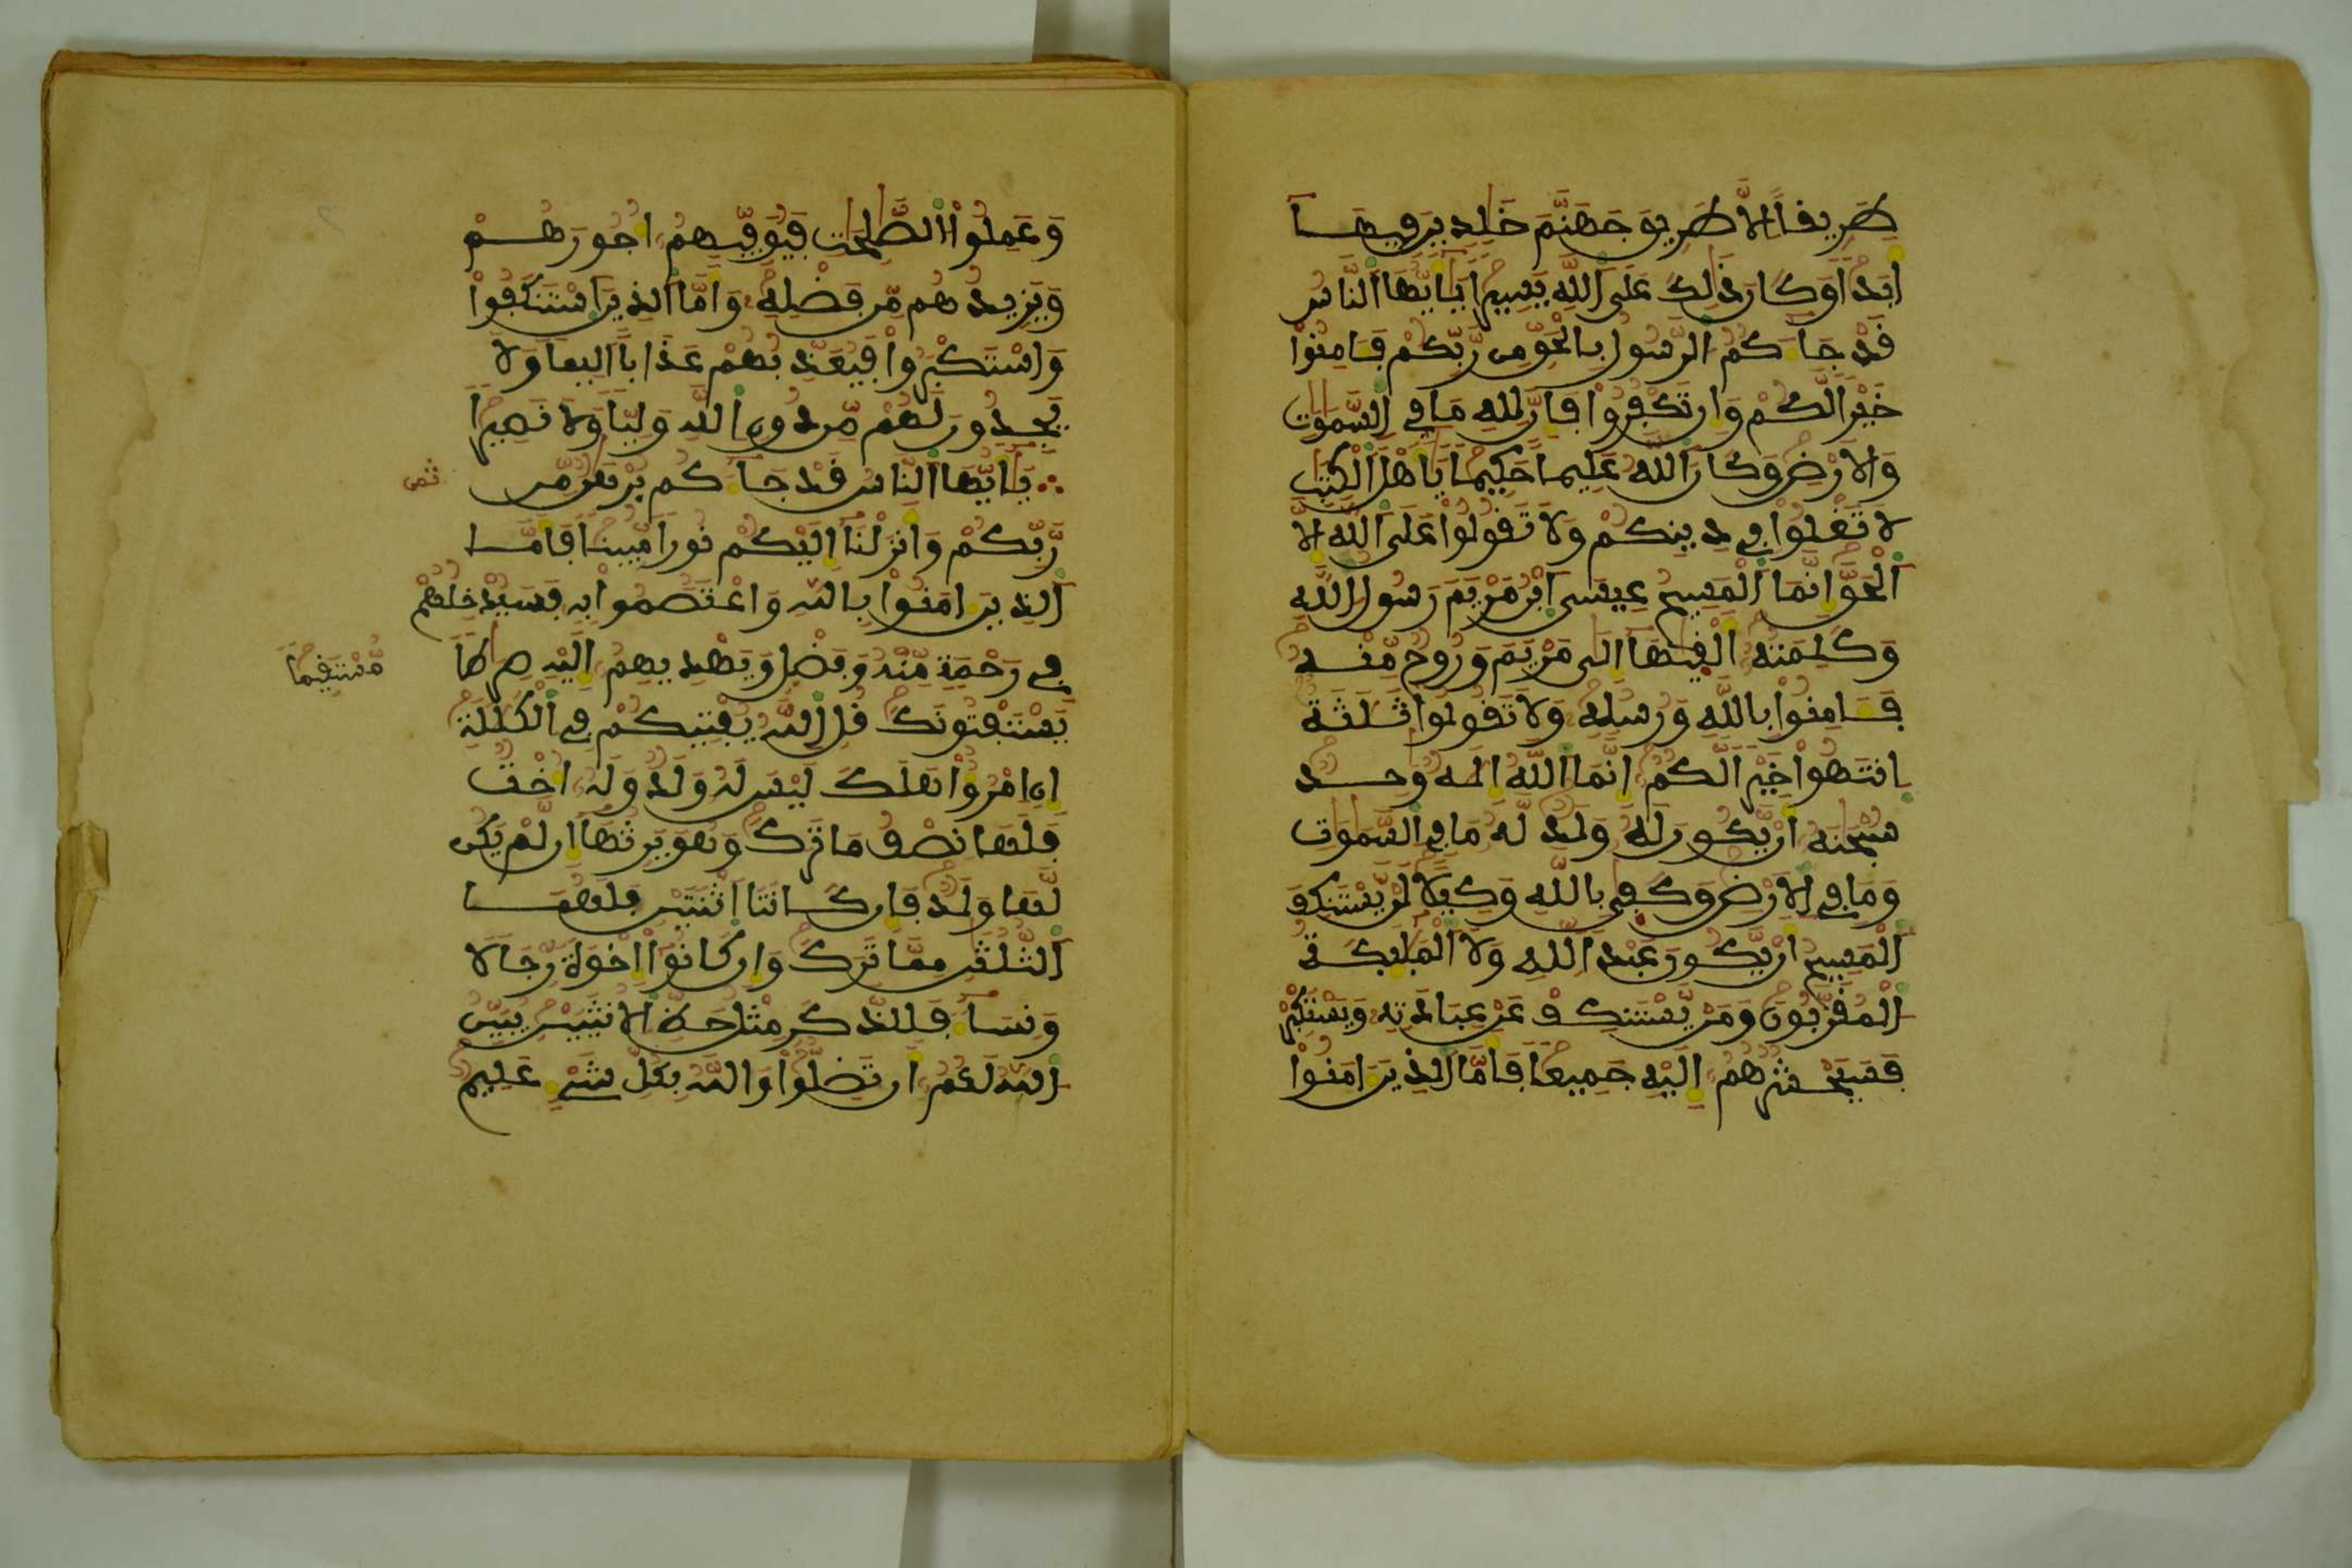 طَرِيقًا اِلَّا طَرِيقَ جَهَنَّمَ خَٰلِدِينَ فِيهَا
أَبَدًا وَكَانَ ذَٰلِكَ عَلَى اللَّهِ يَسِيرًا يَٰأَيُّهَا النَّاسُ
قَدْ جَاءَكُمُ الرَّسُولُ بِالْحَقِّ مِن رَّبِّكُمْ فَـَٔامِنُوا
خَيْرًا لَّكُمْ وَإِن تَكْفُرُوا فَإِنَّ لِلهِ مَا فِي السَّمَٰوَٰتِ
وَالْأَرْضِ وَكَانَ اللَّهُ عَلِيمًا حَكِيمًا يَٰأَهْلَ الْكِتَٰبِ
لَا تَغْلُوا فِي دِينِكُمْ وَلَا تَقُولُوا عَلَى اللَّهِ إِلَّا
الْحَقَّ إِنَّمَا الْمَسِيحُ عِيسَى ابْنُ مَرْيَمَ رَسُولُ اللَّهِ
وَكَلِمَتُهُ أَلْقَىٰهَا إِلَىٰ مَرْيَمَ وَرُوحٌ مِّنْهُ
فَـَٔامِنُوا بِاللَّهِ وَرُسُلِهِ وَلَا تَقُولُوا ثَلَٰثَةٌ
انتَهُوا خَيْرًا لَّكُمُ إِنَّمَا اللَّهُ إِلَٰهٌ وَٰحِدٌ
سُبْحَٰنَهُ أَنْ يَّكُونَ لَهُ وَلَدٌ لَّهُ مَا فِي السَّمَٰوَٰتِ
وَمَا فِي الْأَرْضِ وَكَفَىٰ بِاللَّهِ وَكِيلًا لَنْ يَّسْتَنكِفَ
الْمَسِيحُ أَنْ يَّكُونَ عَبْدًا لِّلهِ وَلَا الْمَلَٰئِكَةُ
الْمُقَرَّبُونَ وَمَنْ يَّسْتَنكِفْ عَنْ عِبَادَتِهِ وَيَسْتَكْبِرْ
فَسَيَحْشُرُهُمُ إِلَيْهِ جَمِيعًا فَأَمَّا الَّذِينَ ءَامَنُوا
وَعَمِلُوا الصَّٰلِحَٰتِ فَيُوَفِّيهِمُ أُجُورَهُمْ
وَيَزِيدُهُم مِّن فَضْلِهِ وَأَمَّا الَّذِينَ اسْتَنكَفُوا
وَاسْتَكْبَرُوا فَيُعَذِّبُهُمْ عَذَابًا أَلِيمًا وَلَا
يَجِدُونَ لَهُم مِّن دُونِ اللَّهِ وَلِيًّا وَلَا نَصِيرًا
يَٰأَيُّهَا النَّاسُ قَدْ جَاءَكُم بُرْهَٰنٌ مِّن
ثمن
رَّبِّكُمْ وَأَنزَلْنَا إِلَيْكُمْ نُورًا مُّبِينًا فَأَمَّا
الَّذِينَ ءَامَنُوا بِاللَّهِ وَاعْتَصَمُوا بِهِ فَسَيُدْخِلُهُمْ
فِي رَحْمَةٍ مِّنْهُ وَفَضْلٍ وَيَهْدِيهِمُ إِلَيْهِ صِرَٰطًا
مُّسْتَقِيمًا
يَسْتَفْتُونَكَ قُلِ اللَّهُ يُفْتِيكُمْ فِي الْكَلَٰلَةِ
إِنِ امْرُؤٌا هَلَكَ لَيْسَ لَهُ وَلَدٌ وَلَهُ أُخْتٌ
فَلَهَا نِصْفُ مَا تَرَكَ وَهُوَ يَرِثُهَا إِن لَّمْ يَكُن
لَّهَا وَلَدٌ فَإِن كَانَتَا اثْنَتَيْنِ فَلَهُمَا
الثُّلُثَٰنِ مِمَّا تَرَكَ وَإِن كَانُوا إِخْوَةً رِّجَالًا
وَنِسَاءً فَلِلذَّكَرِ مِثْلُ حَظِّ الْأُنثَيَيْنِ يُبَيِّنُ
اللَّهُ لَكُمُ أَن تَضِلُّوا وَاللَّهُ بِكُلِّ شَيْءٍ عَلِيمٌ